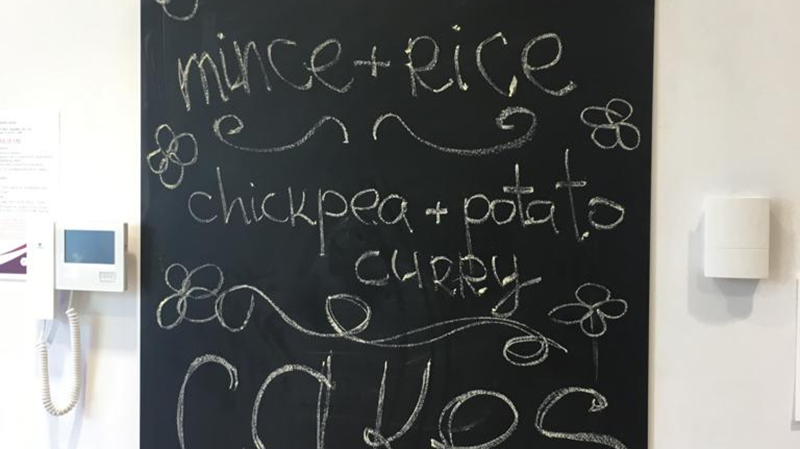 mince + Rice
chickpea + potato
curry
cakes